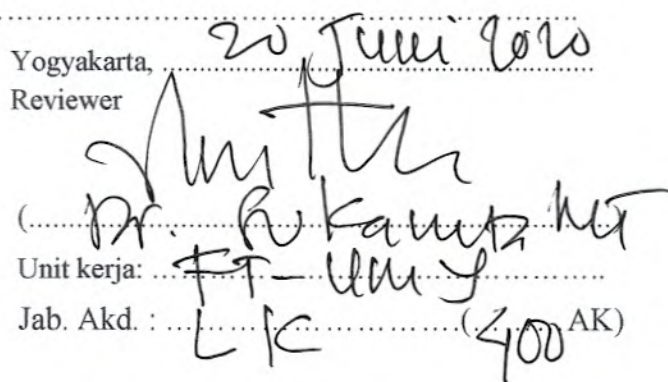 Yogyakarta, 20 Juni 2020
Reviewer
(Dr. Sukamta, MT
Unit kerja: FT-UMY
Jab. Akd. : LK (400 AK)